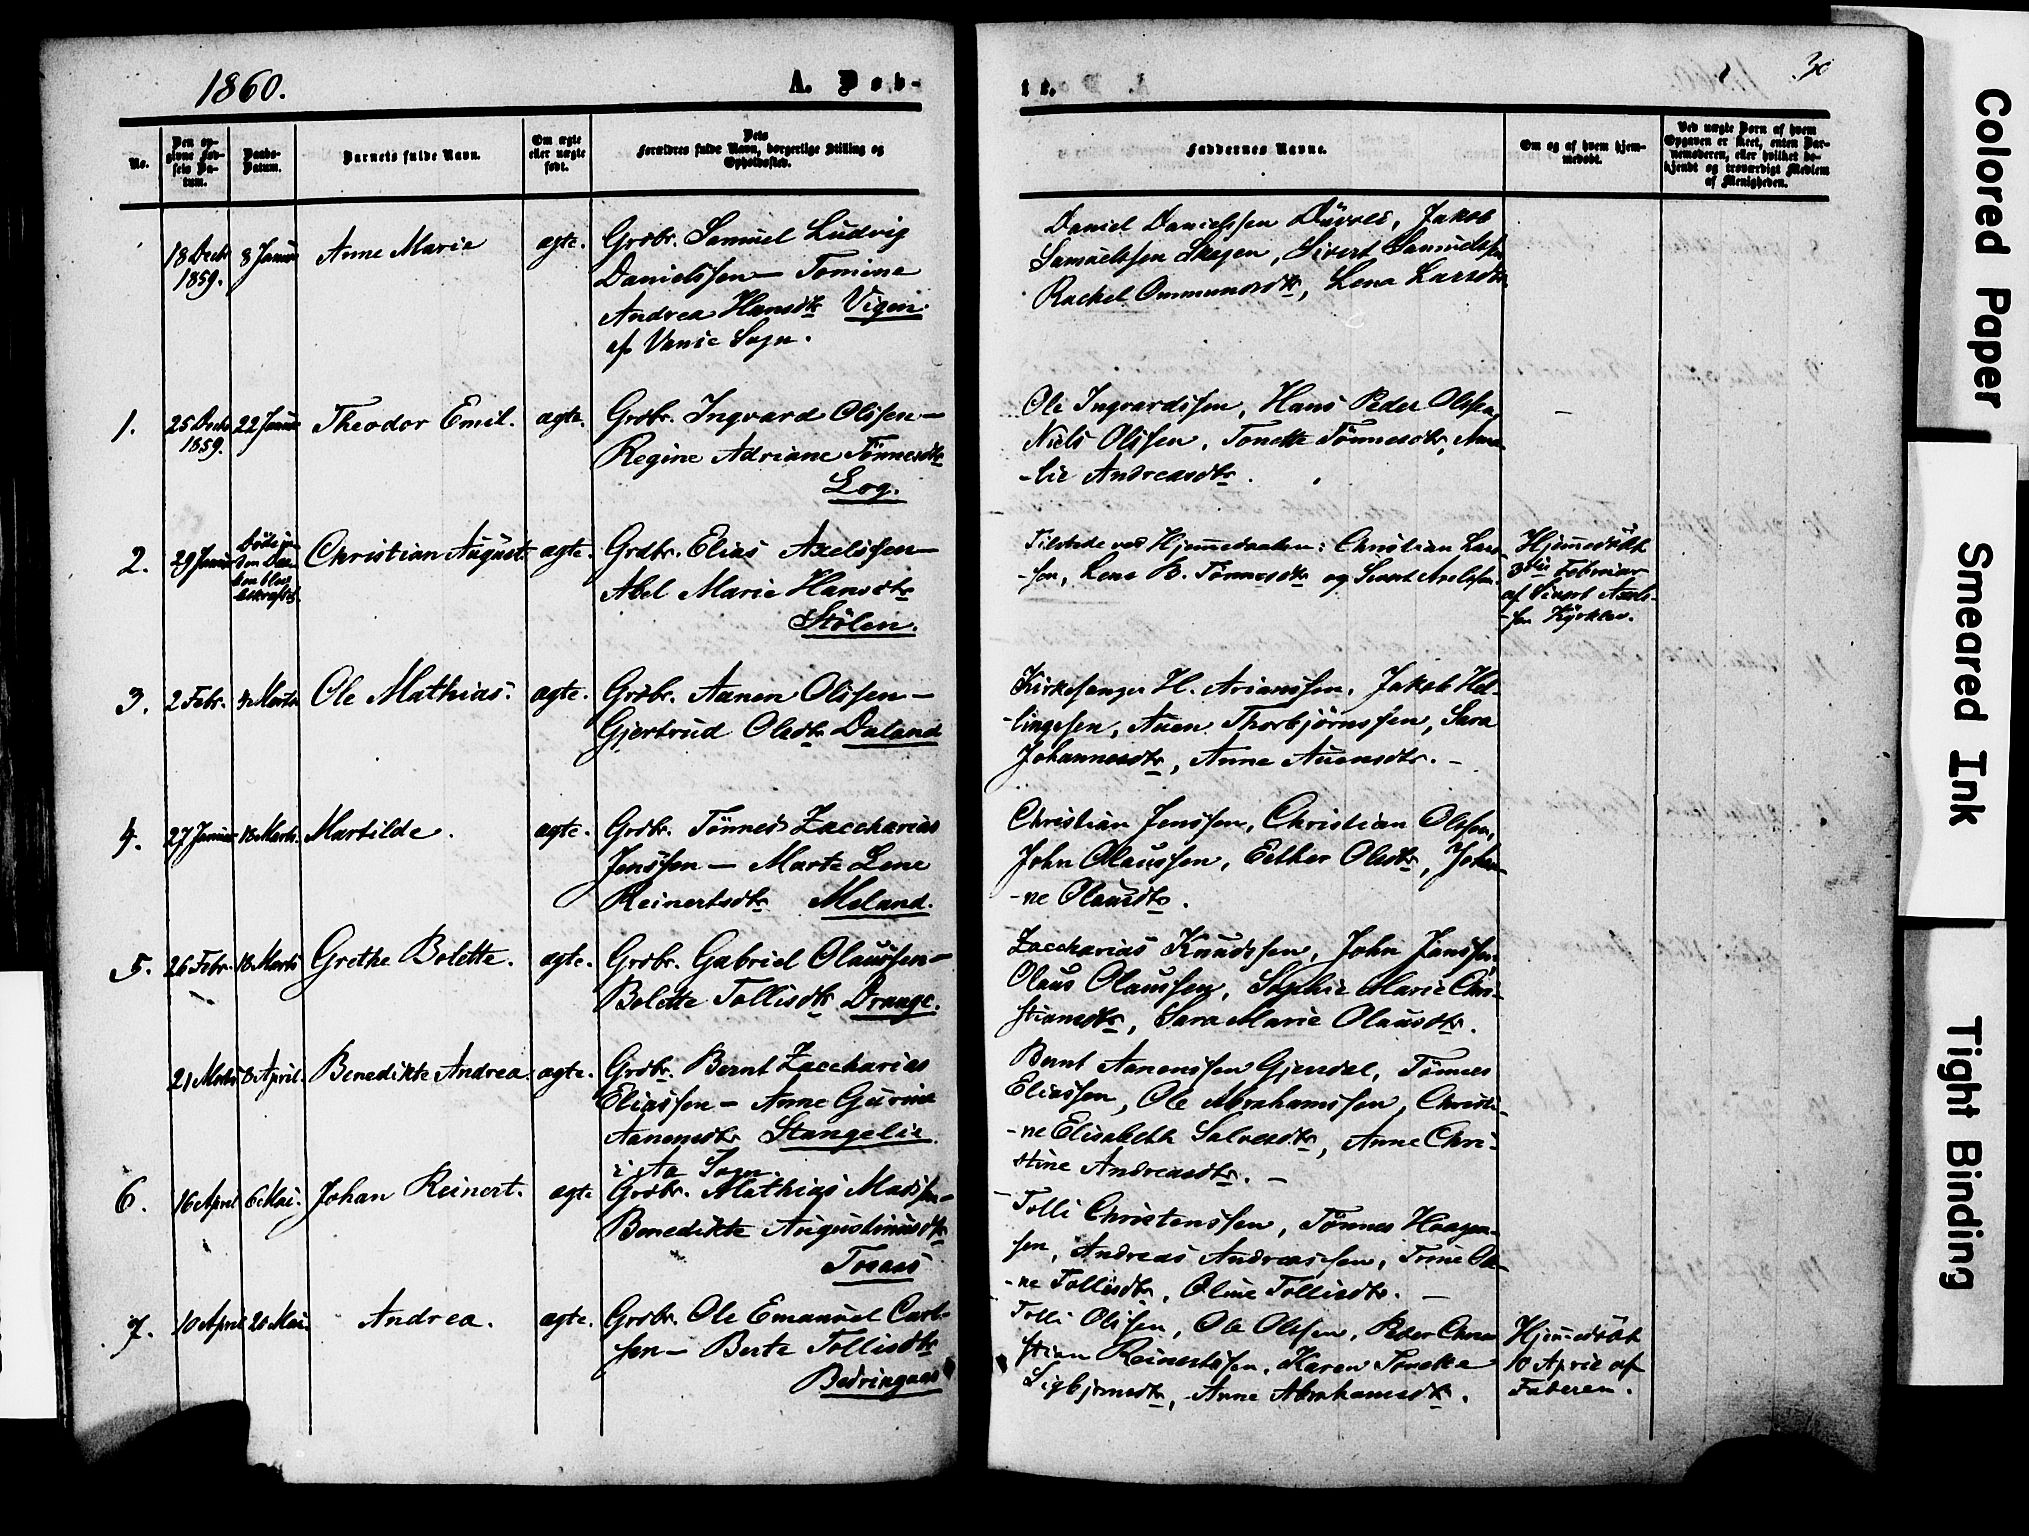 1860.
A. Døb-
te.
30
No.
Den op-
givne Fød-
sels Da-
tum.
Daabs-
Datum.
Barnets fulde Navn.
Om ægte
eller uægte
født.
Dets
Forældres fulde Navn, borgerlige Stilling og
Opholdssted.
Faddernes Navne.
Om og af hvem hjem-
medøbt.
Ved uægte Børn af hvem
Opgaven er skeet, enten Bar-
nemoderen, eller hvilket be-
kjendt og troværdigt Medlem
af Menigheden.
18 Decbr
1859.
8 Januar
Anne Marie
ægte.
Grdbr. Samuel Ludvig
Danielssen – Tomine
Andrea Hansdtr Vigen
af Vanse Sogn.
Daniel Danielssen, Jakob
Samuelssen Skogen, Sivert Samuelssen
Rachel Ommundsdtr, Lena Larsdtr
1.
25 Decbr
1859.
22 Januar
Theodor Emil.
ægte.
Grdbr. Ingvard Olssen –
Regine Adriane Tönnesdtr
Log.
Ole Ingvardssen, Hans Peder Olssen,
Niels Olssen, Tonette Tönnesdtr, Ama-
-lie Andreasdtr.
2.
29 Januar
Døde in-
den Daa-
ben blev
bekræftet.
Christian August.
ægte.
Grdbr. Elias Axelssen –
Abel Marie Hansdtr
Stölen.
Tilstede ved Hjemmedaaben: Christian Lars-
-sen, Lene B. Tönnesdtr og Sivert Axelssen.
Hjemmedöbt
3die Februar
af Sivert Axels-
-sen
3.
2 Febr.
Marts
Ole Mathias.
ægte.
Grdbr. Aanen Olssen –
Gjertrud Olsdtr Daland
Kirkesanger H. Arianssen, Jakob Hel-
-lingesen, Auen Thorbjörnssen, Sara
Johannesdtr, Anne Auensdtr. –
4.
27 Januar
18 Marts.
Martilde.
ægte.
Grdbr. Tönnes Zaccharias
Jenssen – Marte Lene
Reinertsdtr Meland.
Christian Jenssen, Christian Olssen,
John Olaussen, Esther Olsdtr, Johan-
-ne Olausdtr.
5.
26 Febr.
18 Marts
Grethe Bolette.
ægte.
Grdbr. Gabriel Olaussen –
Bolette Tollisdtr Drange.
Zaccharias Knudssen, John Janssen,
Olaus Olaussen, Sophie Marie Chri-
stiansdtr, Sara Marie Olausdtr.
21 Marts
8 April.
Benedikte Andrea.
ægte.
Grdbr. Bernt Zaccharias
Eliassen – Anne Gurine
Aanensdtr Stangelie
i Aa Sogn.
Bernt Aanenssen Gjersdal, Tönnes
Eliassen, Ole Abrahamssen, Christi-
-ne Elisabeth Salvesdtr, Anne Chri-
stine Andreasdtr. –
6.
16 April
6 Mai.
Johan Reinert.
ægte
Grdbr. Mathias Madssen –
Benedikte Augustinusdtr
Tosaas
Tolli Christenssen, Tönnes Haagen-
sen, Andreas Andreassen, Trine Ol-
-ne Tollisdtr, Oline Tollisdtr. –
7.
10 April
20 Mai.
Andrea.
ægte.
Grdbr. Ole Emanuel Carl-
sen – Berte Tollisdtr
Bedringaas
Tolli Olssen, Ole Olssen, Peter Chri-
stian Reinertssen, Karen Toncka
Sigbjörnsdtr, Anne Abrahamsdtr.
Hjemmedöbt
10 April af
Faderen.
Colored Paper
Smeared Ink
Tight Binding